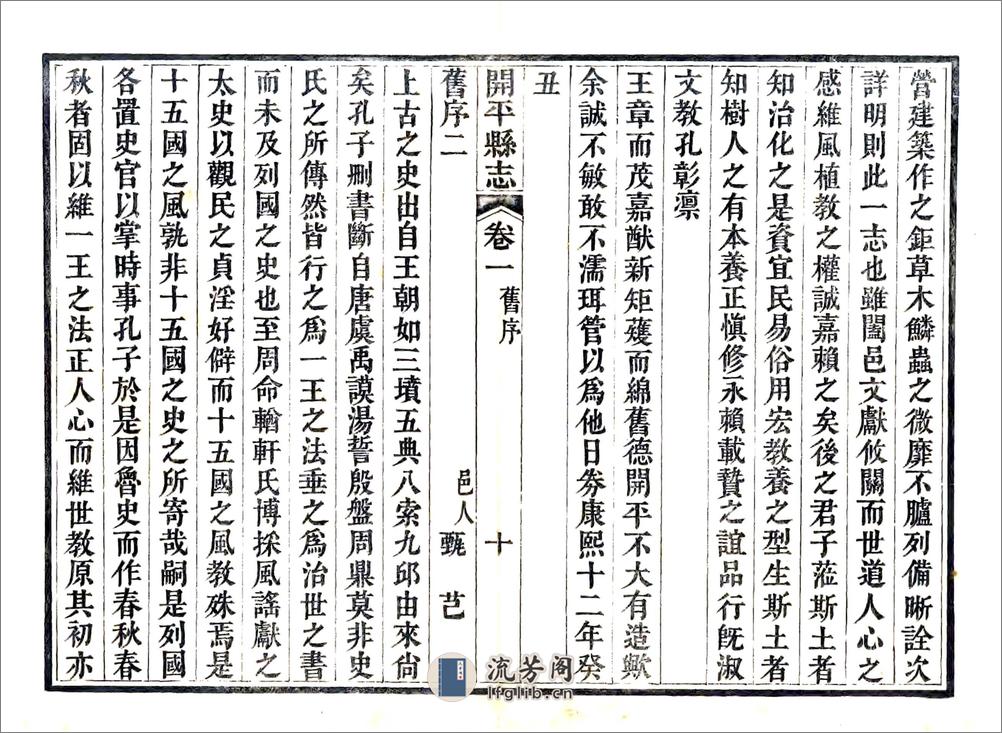 營建築作之鉅草木鱗蟲之微靡不臚列備晰詮次
詳明則此一志也雖闔邑文獻攸關而世道人心之
感維風植教之權誠嘉賴之矣後之君子蒞斯土者
知治化之是資宜民易俗用宏教養之型生斯土者
知樹人之有本養正慎修永賴載贊之誼品行旣淑
文教孔彰凜
王章而茂嘉猷新矩矱而綿舊德開平不大有造歟
余誠不敏敢不濡珥管以爲他日券康熙十二年癸
丑
開平縣志 卷一 舊序 十
舊序二 邑人 甄芑
上古之史出自王朝如三墳五典八索九邱由來尙
矣孔子刪書斷自唐虞禹謨湯誓殷盤周鼎莫非史
氏之所傳然皆行之爲一王之法垂之爲治世之書
而未及列國之史也至周命輶軒氏博採風謠獻之
太史以觀民之貞淫好僻而十五國之風教姝焉是
十五國之風孰非十五國之史之所寄哉嗣是列國
各置史官以掌時事孔子於是因魯史而作春秋春
秋者固以維一王之法正人心而維世教原其初亦
流芳阁
lfglib.cn